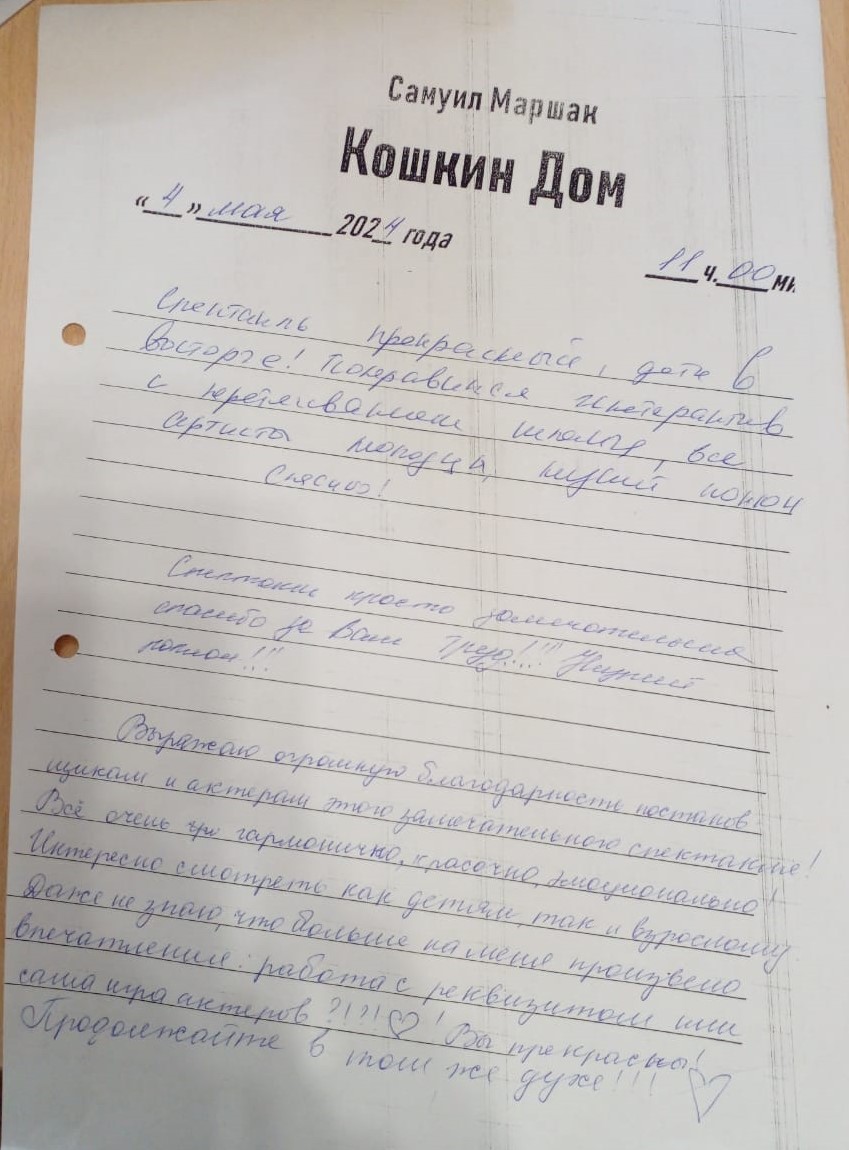 Самуил Маршак
Кошкин Дом
«4» мая 2024 года
11 ч. 00 ми
Спектакль прекрасный, дети в
восторге! Понравился интерактив
с перетягиванием шторы, все
артисты молодцы, низкий поклон
Спасибо!
Спектакль просто замечательный
спасибо за Ваш труд!!! Низкий
поклон!!!
Выражаю огромную благодарность постанов
щикам и актерам этого замечательного спектакля!
Всё очень гармонично, красочно, эмоционально!
Интересно смотреть как детям, так и взрослому
Даже не знаю, что больше на меня произвело
впечатление: работа с реквизитом или
сама игра актеров ?!?! ♡! Вы прекрасны!
Продолжайте в том же духе!!! ♡